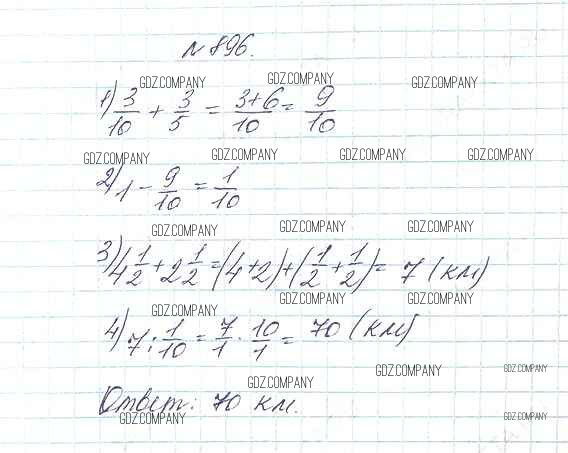 №896.
GDZ.COMPANY GDZ.COMPANY GDZ.COMPANY
1) 3/10 + 3/5 = 3+6/10 = 9/10
GDZ.COMPANY GDZ.COMPANY GDZ.COMPANY GDZ.COMPANY
2) 1 - 9/10 = 1/10
GDZ.COMPANY GDZ.COMPANY GDZ.COMPANY
3) 4 1/2 + 2 1/2 = (4+2)+(1/2+1/2) = 7 (км)
GDZ.COMPANY GDZ.COMPANY GDZ.COMPANY
4) 7 : 1/10 = 7/1 · 10/1 = 70 (км)
GDZ.COMPANY GDZ.COMPANY GDZ.COMPANY
Ответ: 70 км.
GDZ.COMPANY GDZ.COMPANY